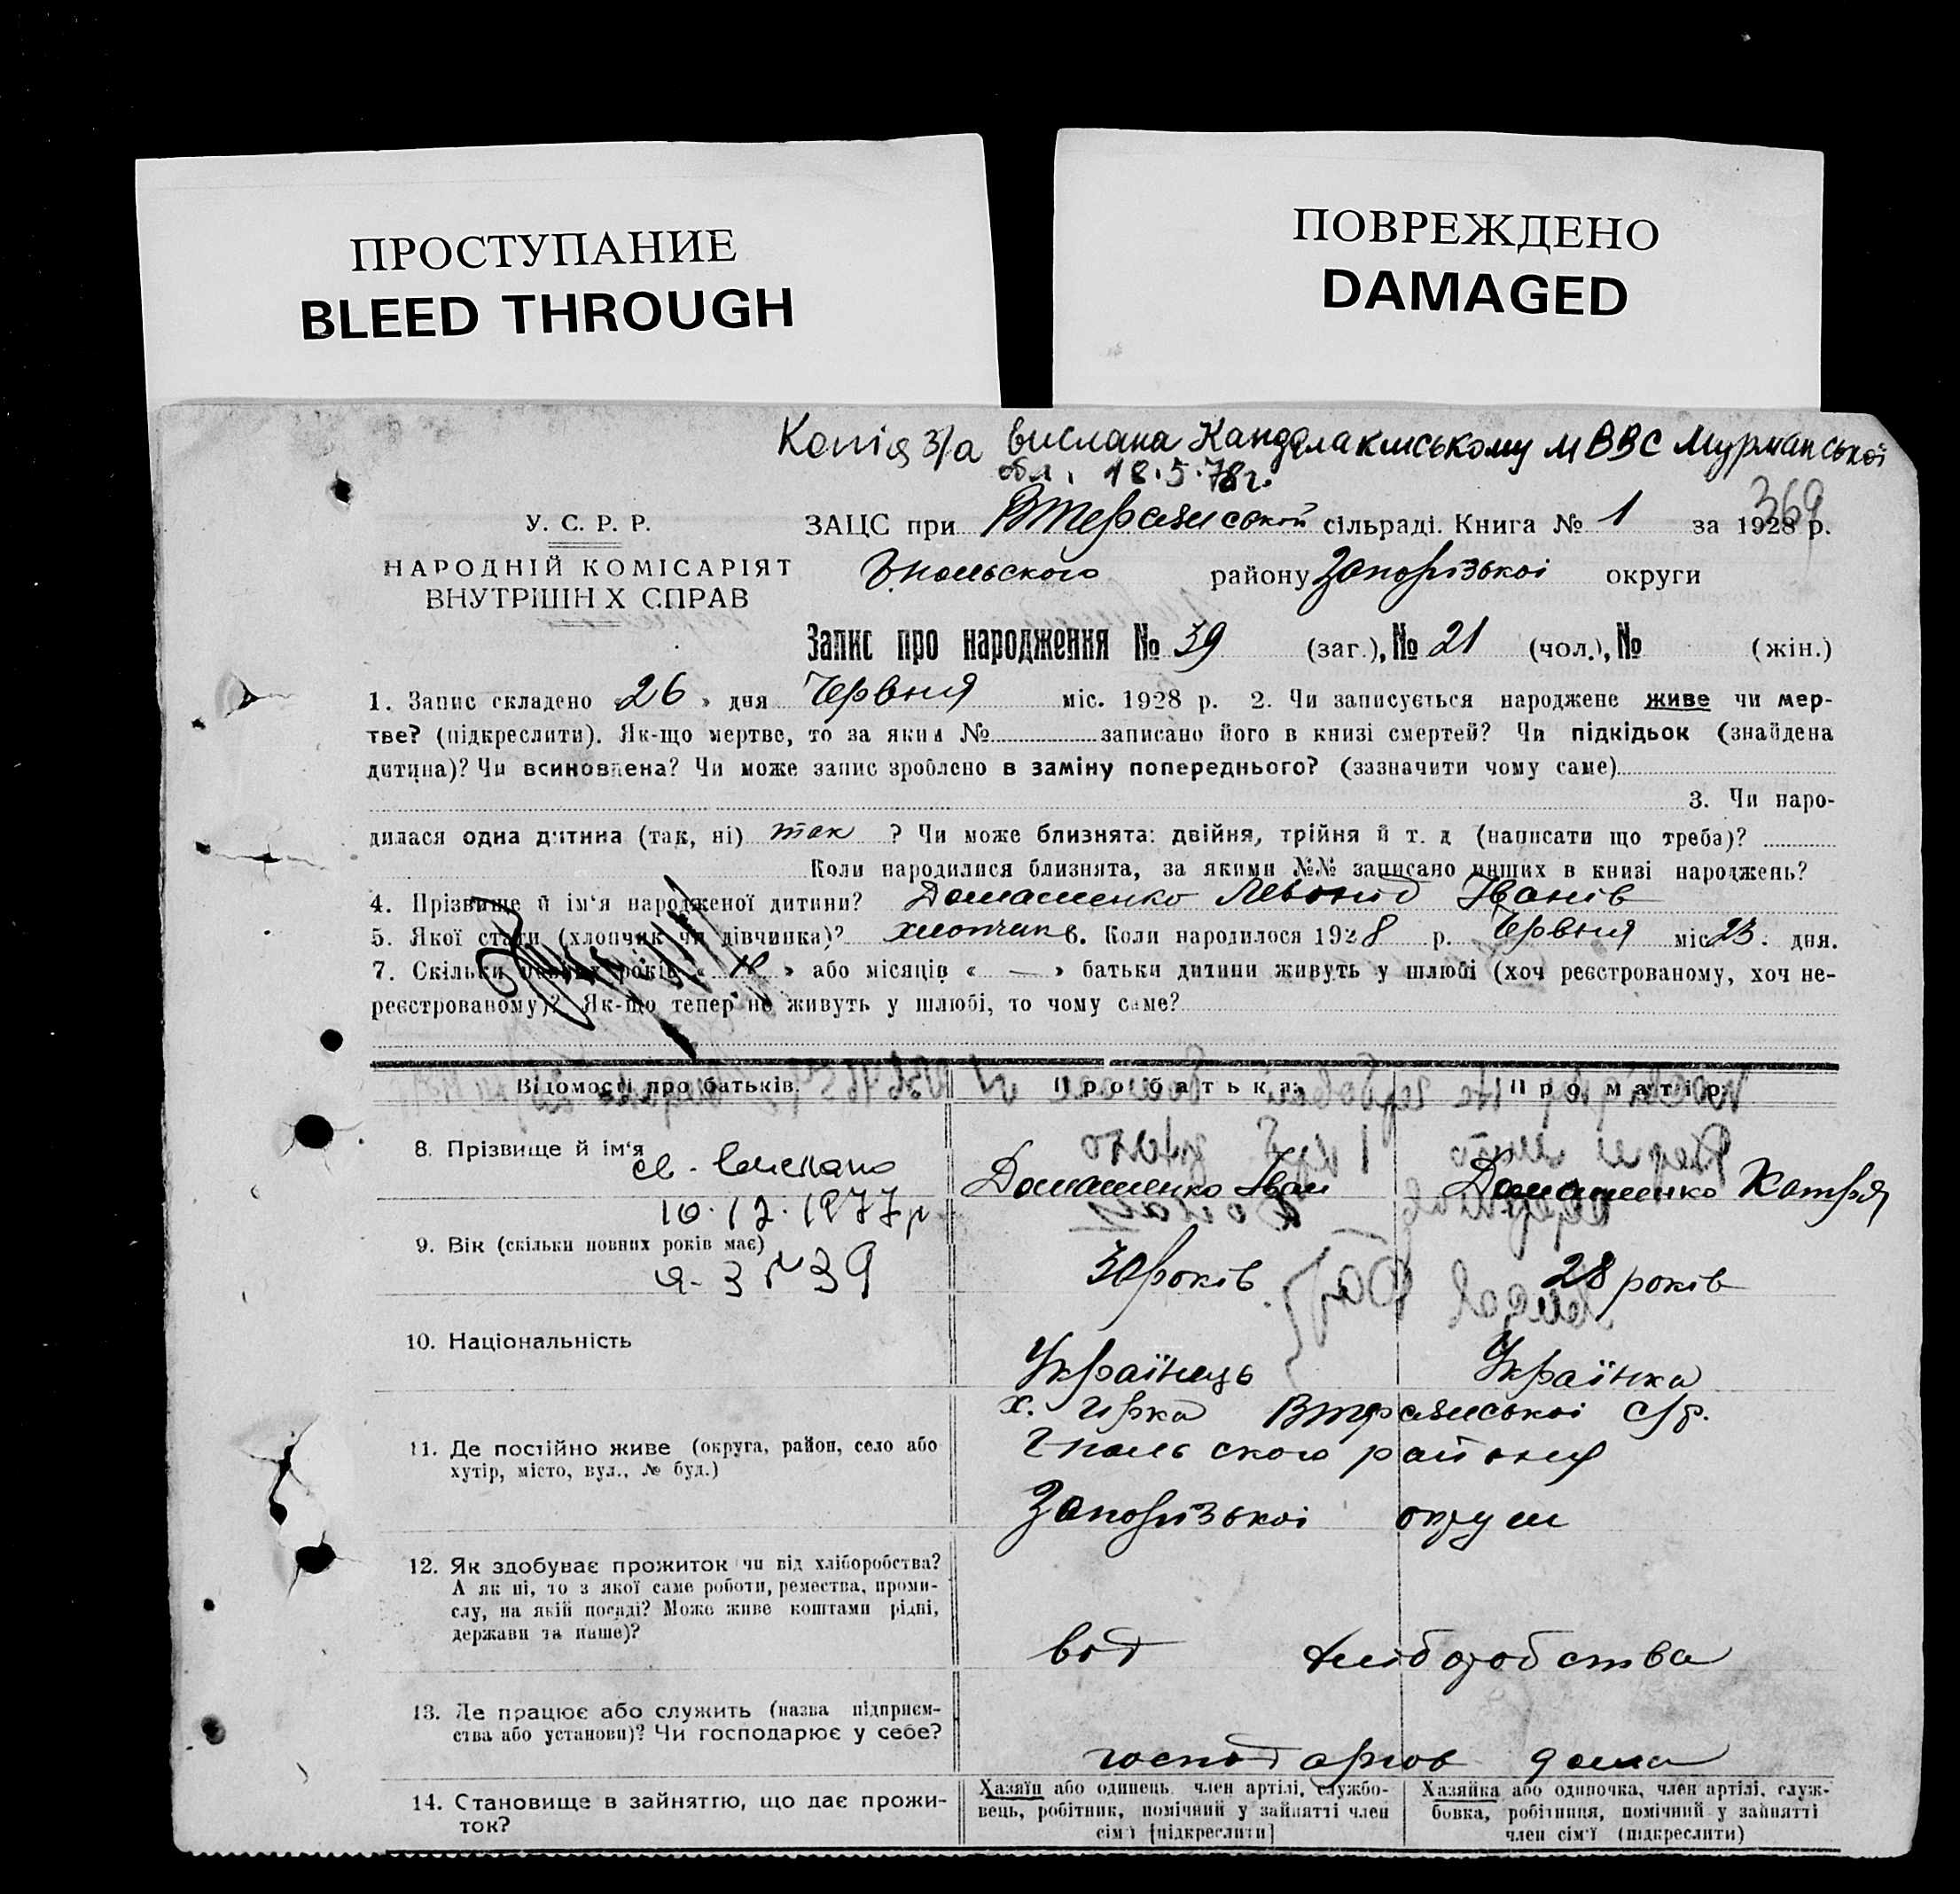 ПРОСТУПАНИЕ
BLEED THROUGH
ПОВРЕЖДЕНО
DAMAGED
Копія з/а вислана Кандалакшському МВВС Мурманської
обл. 18.5.78г.
369
У. С. Р. Р.
НАРОДНІЙ КОМІСАРІЯТ
ВНУТРІШНІХ СПРАВ
ЗАЦС при сільраді. Книга № 1 за 1928 р.
району Запорізької округи
Запис про народження № 39 (заг.), № 21 (чол.), № (жін.)
1. Запис складено 26 » дня Червня міс. 1928 р. 2. Чи записується народжене живе чи мер-
тве? (підкреслити). Як-що мертве, то за яким № записано його в книзі смертей? Чи підкідьок (знайдена
дитина)? Чи всиновлена? Чи може запис зроблено в заміну попереднього? (зазначити чому саме)
3. Чи наро-
дилася одна дитина (так, ні) так ? Чи може близнята: двійня, трійня й т. д (написати що треба)?
Коли народилися близнята, за якими №№ записано инших в книзі народжень?
4. Прізвище й ім'я народженої дитини? Домашенко Леонід Іванів
5. Якої стати (хлопчик чи дівчинка)? хлопчик 6. Коли народилося 1928 р. Червня міс 23. дня.
7. Скільки повних років « » або місяців « — » батьки дитини живуть у шлюбі (хоч реєстрованому, хоч не-
реєстрованому)? Як-що тепер не живуть у шлюбі, то чому саме?
Відомості про батьків.
Про батька:
Про матір:
8. Прізвище й ім'я
св. вислано
10.12.1977р
Домашенко Іван
Домашенко Катря
9. Вік (скільки повних років має)
я-З №39
30 років
28 років
10. Національність
Українець
Українка
11. Де постійно живе (округа, район, село або
хутір, місто, вул., № буд.)
х. с/р.
району
Запорізької округи
12. Як здобуває прожиток чи від хліборобства?
А як ні, то з якої саме роботи, ремества, проми-
слу, на якій посаді? Може живе коштами рідні,
держави та инше)?
від хліборобства
13. Де працює або служить (назва підприєм-
ства або установи)? Чи господарює у себе?
дома
14. Становище в зайняттю, що дає прожи-
ток?
Хазяїн або одинець, член артілі, службо-
вець, робітник, помічний у зайнятті член
сім'ї [підкреслити]
Хазяйка або одиночка, член артілі, служ-
бовка, робітниця, помічний у зайнятті
член сім'ї (підкреслити)